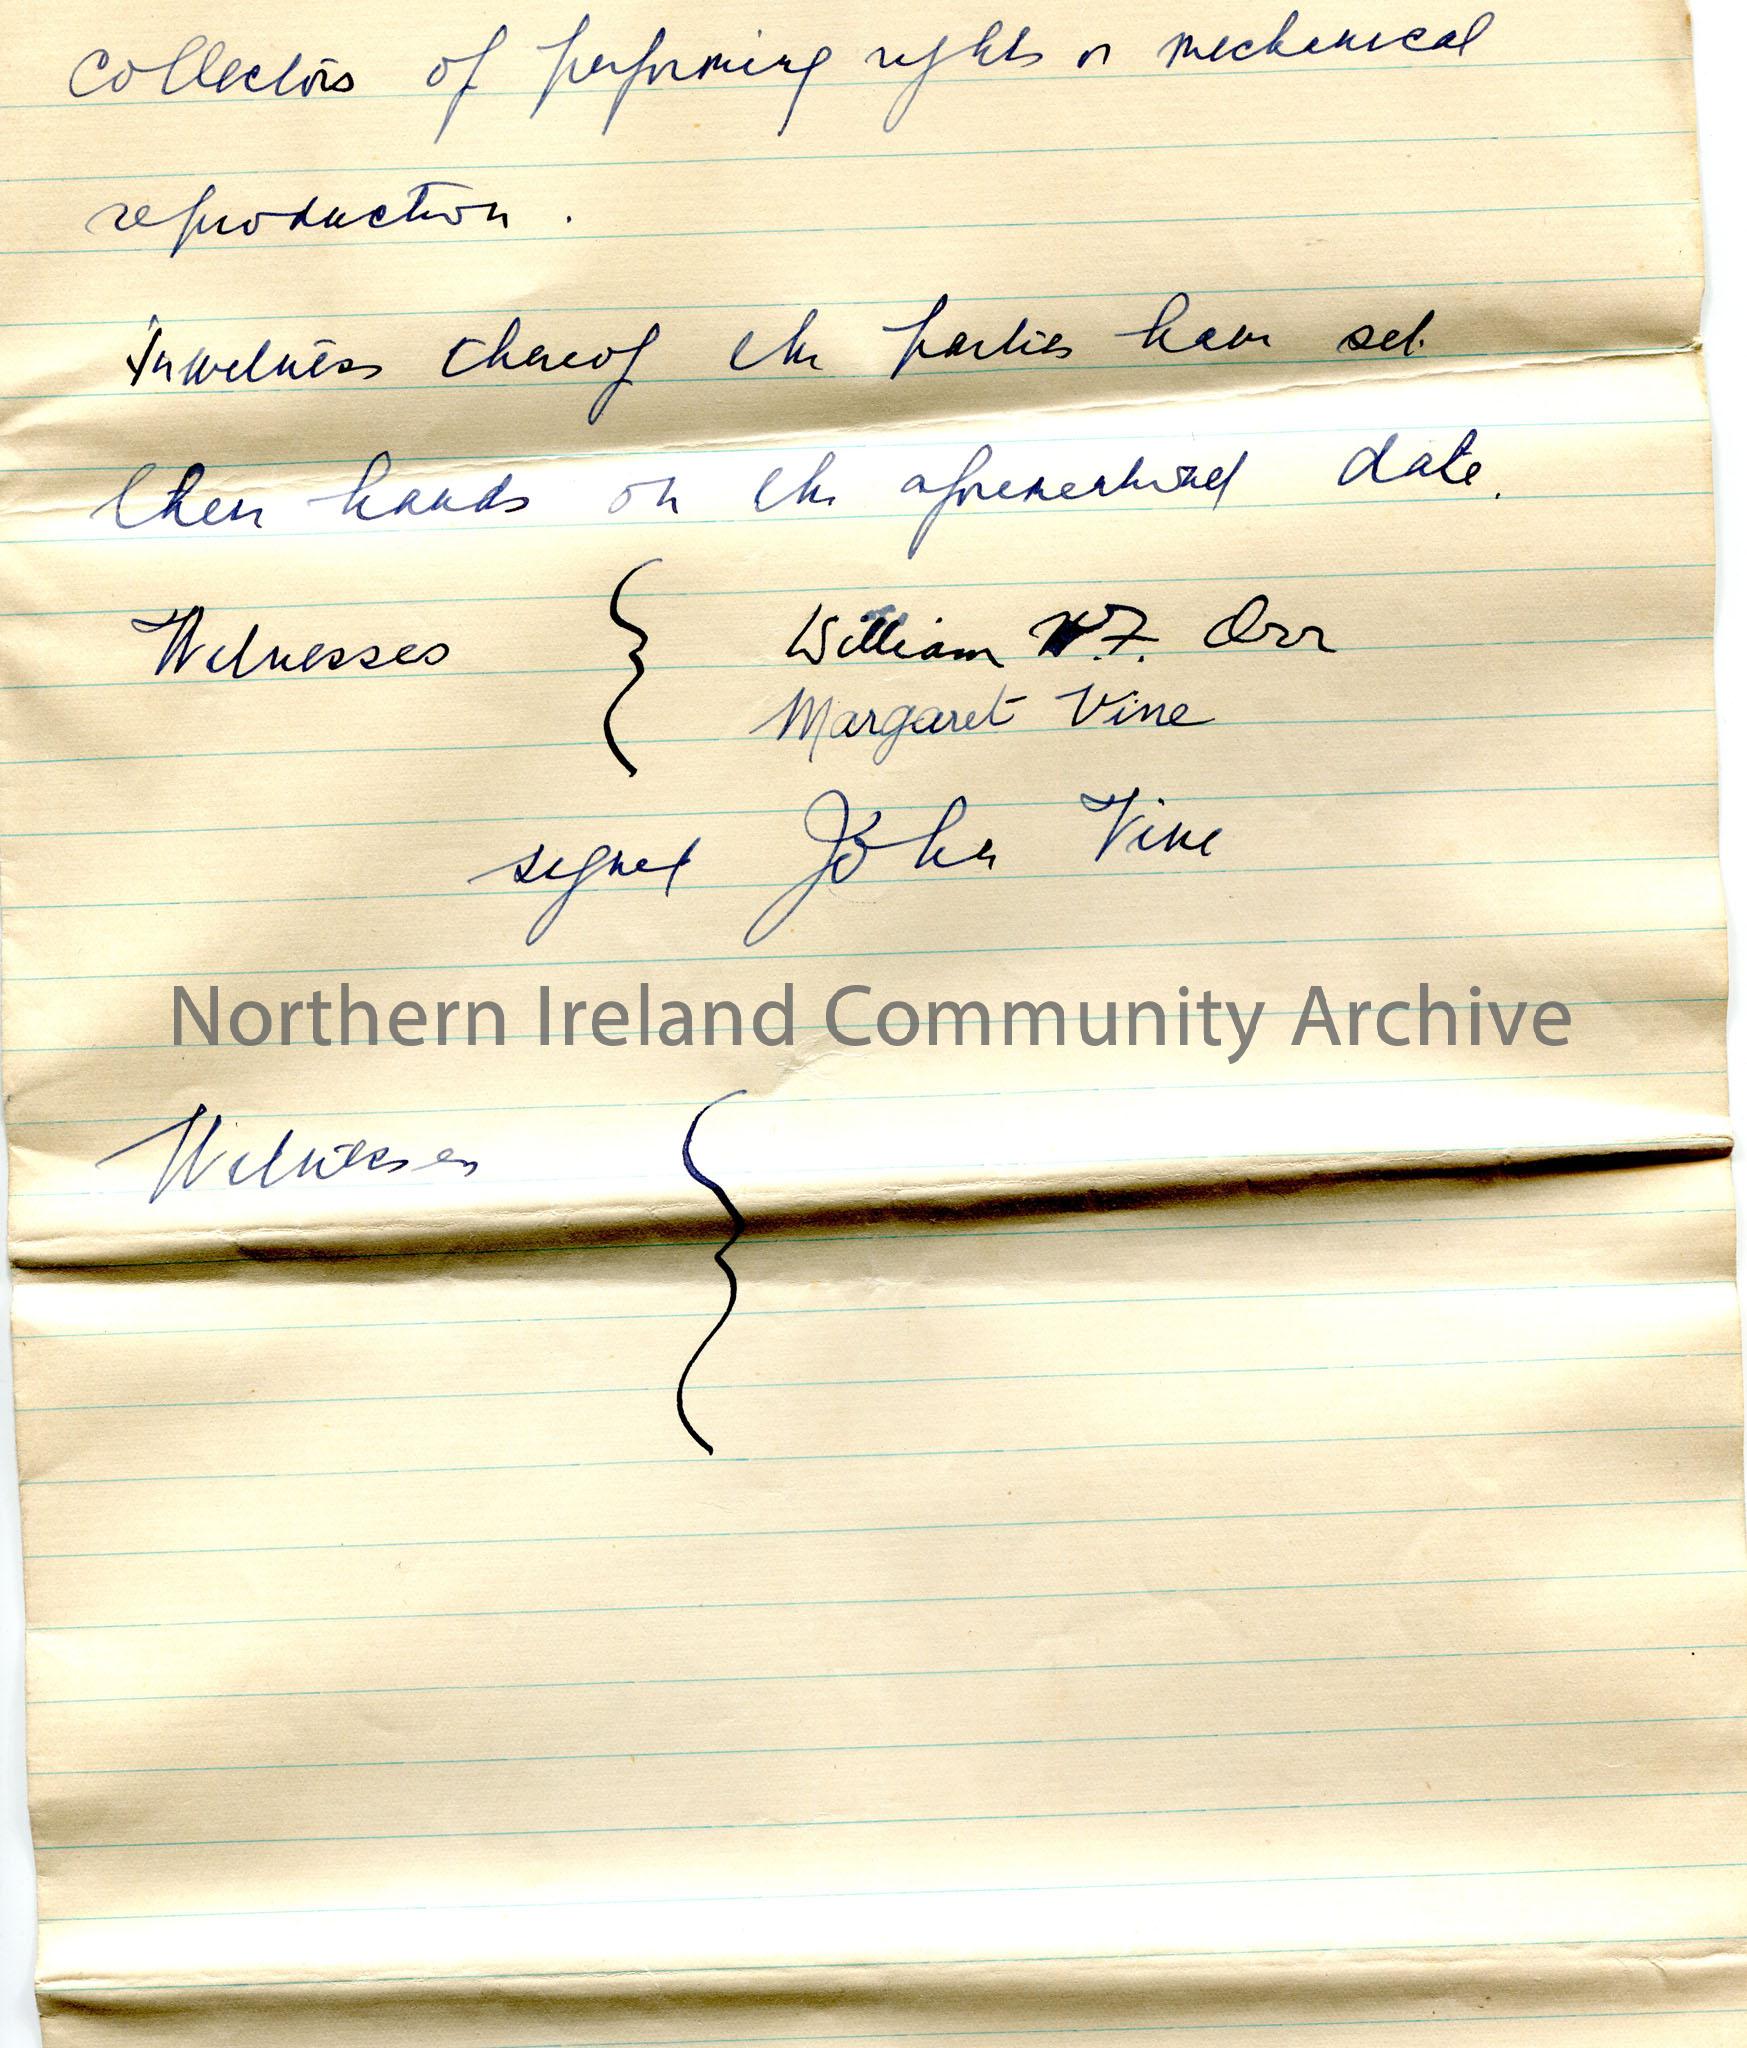 Collectors of performing rights or mechanical
reproduction.
In witness thereof the parties have set
their hands on the aforementioned date.
Witnesses { William F. Orr
Margaret Vine
signed John Vine
Northern Ireland Community Archive
Witnesses {